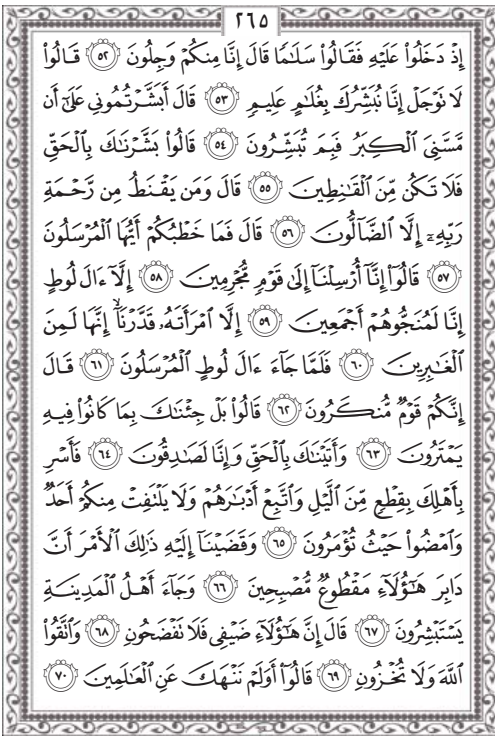 ٢٦٥
إِذْ دَخَلُواْ عَلَيْهِ فَقَالُواْ سَلَٰمًا قَالَ إِنَّا مِنكُمْ وَجِلُونَ ٥٢ قَالُواْ
لَا تَوْجَلْ إِنَّا نُبَشِّرُكَ بِغُلَٰمٍ عَلِيمٍ ٥٣ قَالَ أَبَشَّرْتُمُونِي عَلَىٰٓ أَن
مَّسَّنِيَ ٱلْكِبَرُ فَبِمَ تُبَشِّرُونَ ٥٤ قَالُواْ بَشَّرْنَٰكَ بِٱلْحَقِّ
فَلَا تَكُن مِّنَ ٱلْقَٰنِطِينَ ٥٥ قَالَ وَمَن يَقْنَطُ مِن رَّحْمَةِ
رَبِّهِۦٓ إِلَّا ٱلضَّآلُّونَ ٥٦ قَالَ فَمَا خَطْبُكُمْ أَيُّهَا ٱلْمُرْسَلُونَ
٥٧ قَالُوٓاْ إِنَّآ أُرْسِلْنَآ إِلَىٰ قَوْمٍ مُّجْرِمِينَ ٥٨ إِلَّآ ءَالَ لُوطٍ
إِنَّا لَمُنَجُّوهُمْ أَجْمَعِينَ ٥٩ إِلَّا ٱمْرَأَتَهُۥ قَدَّرْنَآ ۙ إِنَّهَا لَمِنَ
ٱلْغَٰبِرِينَ ٦٠ فَلَمَّا جَآءَ ءَالَ لُوطٍ ٱلْمُرْسَلُونَ ٦١ قَالَ
إِنَّكُمْ قَوْمٌ مُّنكَرُونَ ٦٢ قَالُواْ بَلْ جِئْنَٰكَ بِمَا كَانُواْ فِيهِ
يَمْتَرُونَ ٦٣ وَأَتَيْنَٰكَ بِٱلْحَقِّ وَإِنَّا لَصَٰدِقُونَ ٦٤ فَأَسْرِ
بِأَهْلِكَ بِقِطْعٍ مِّنَ ٱلَّيْلِ وَٱتَّبِعْ أَدْبَٰرَهُمْ وَلَا يَلْتَفِتْ مِنكُمْ أَحَدٌ
وَٱمْضُواْ حَيْثُ تُؤْمَرُونَ ٦٥ وَقَضَيْنَآ إِلَيْهِ ذَٰلِكَ ٱلْأَمْرَ أَنَّ
دَابِرَ هَٰٓؤُلَآءِ مَقْطُوعٌ مُّصْبِحِينَ ٦٦ وَجَآءَ أَهْلُ ٱلْمَدِينَةِ
يَسْتَبْشِرُونَ ٦٧ قَالَ إِنَّ هَٰٓؤُلَآءِ ضَيْفِي فَلَا تَفْضَحُونِ ٦٨ وَٱتَّقُواْ
ٱللَّهَ وَلَا تُخْزُونِ ٦٩ قَالُوٓاْ أَوَلَمْ نَنْهَكَ عَنِ ٱلْعَٰلَمِينَ ٧٠